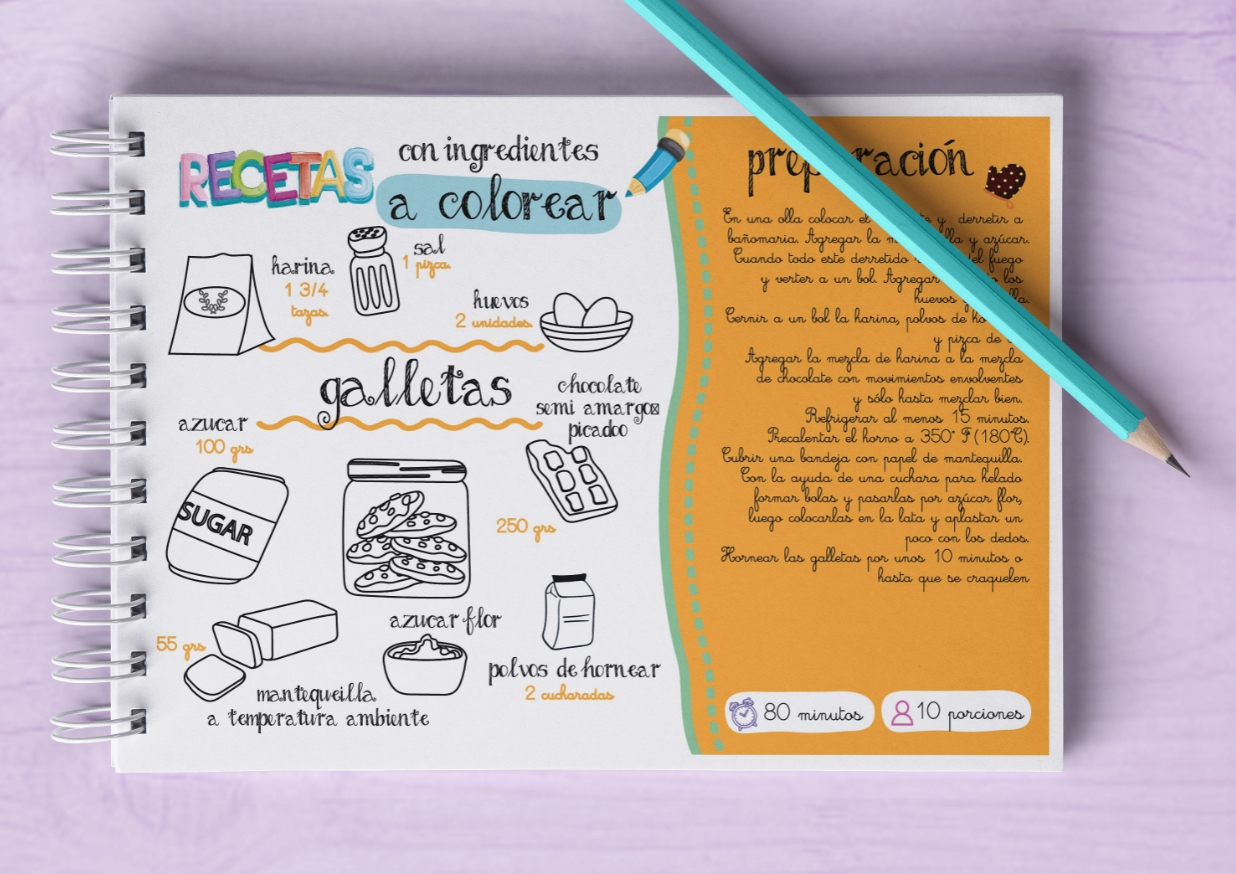 RECETAS
con ingredientes
a colorear
harina
1 3/4
tazas
sal
1 pizca
huevos
2 unidades
galletas
chocolate
semi amargo
picado
250 grs
azucar
100 grs
SUGAR
55 grs
mantequeilla
a temperatura ambiente
azucar flor
polvos de hornear
2 cucharadas
En una olla colocar el y derretir a
bañomaria. Agregar la y azúcar.
Cuando todo este derretido del fuego
y verter a un bol. Agregar los
huevos
Cernir a un bol la harina, polvos de
y pizca de
Agregar la mezcla de harina a la mezcla
de chocolate con movimientos envolventes
y sólo hasta mezclar bien.
Refrigerar al menos 15 minutos.
Precalentar el horno a 350° F (180°C).
Cubrir una bandeja con papel de mantequilla.
Con la ayuda de una cuchara para helado
formar bolas y pasarlas por azúcar flor,
luego colocarlas en la lata y aplastar un
poco con los dedos.
Hornear las galletas por unos 10 minutos o
hasta que se craquelen
80 minutos
10 porciones